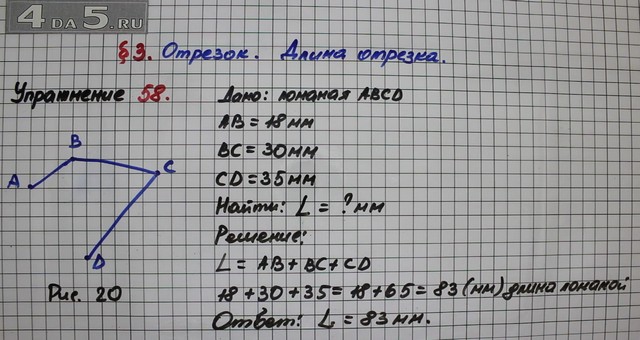 4 DA 5.RU
§3. Отрезок. Длина отрезка.
Упражнение 58.
Дано: ломаная ABCD
AB = 18 мм
BC = 30 мм
CD = 35 мм
Найти: L = ? мм
Решение:
L = AB + BC + CD
18 + 30 + 35 = 18 + 65 = 83 (мм) длина ломаной
Ответ: L = 83 мм.
B
A
C
D
Рис. 20